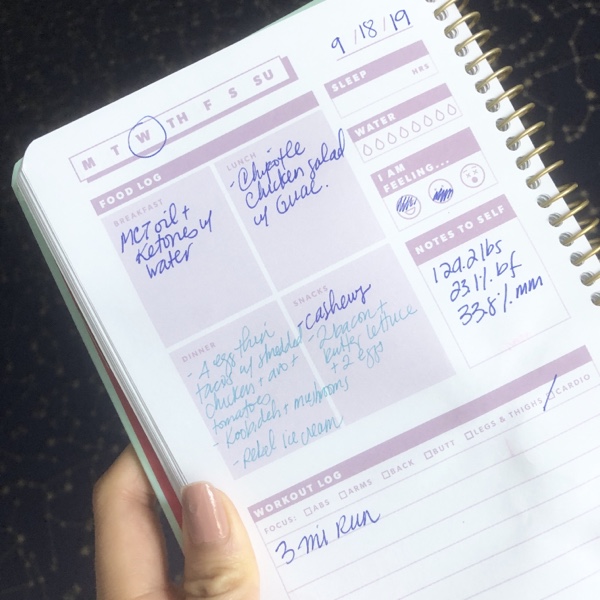 9/18/19
M T W TH F S SU
SLEEP
HRS
WATER
I AM
FEELING...
NOTES TO SELF
129.2 lbs
23.1% bf
33.8% mm
FOOD LOG
BREAKFAST
MCT oil +
Ketones w/
water
LUNCH
- Chipotle
Chicken salad
w/ Guac.
DINNER
- 4 egg thin
tacos w/ shredded
chicken + avo +
tomatoes
- Koobideh + mushrooms
- Rebel ice cream
SNACKS
- cashews
- 2 bacon +
butter lettuce
+ 2 eggs
WORKOUT LOG
FOCUS: ABS ARMS BACK BUTT LEGS & THIGHS CARDIO
3 mi Run